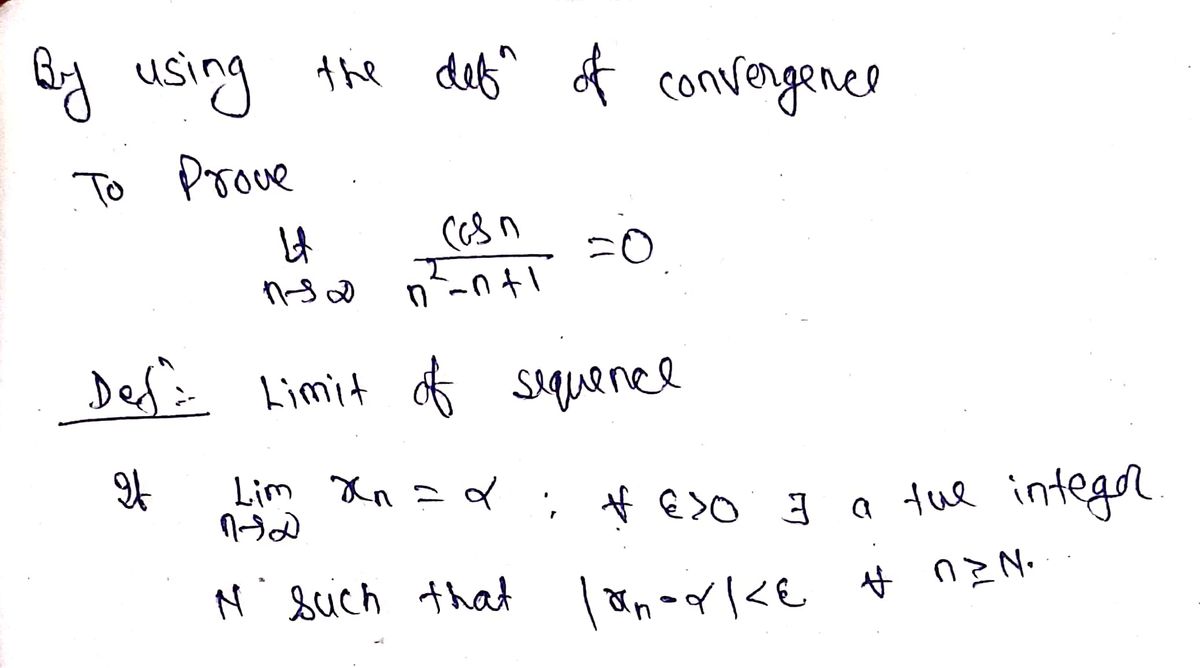 By using the defⁿ of convergence
To Prove
Lt cos n / n²-n+1 = 0
n→∞
Defⁿ:- Limit of sequence
If Lim xₙ = α ; ∀ ε>0 ∃ a +ve integer
n→∞
N such that |xₙ-α|<ε ∀ n≥N.